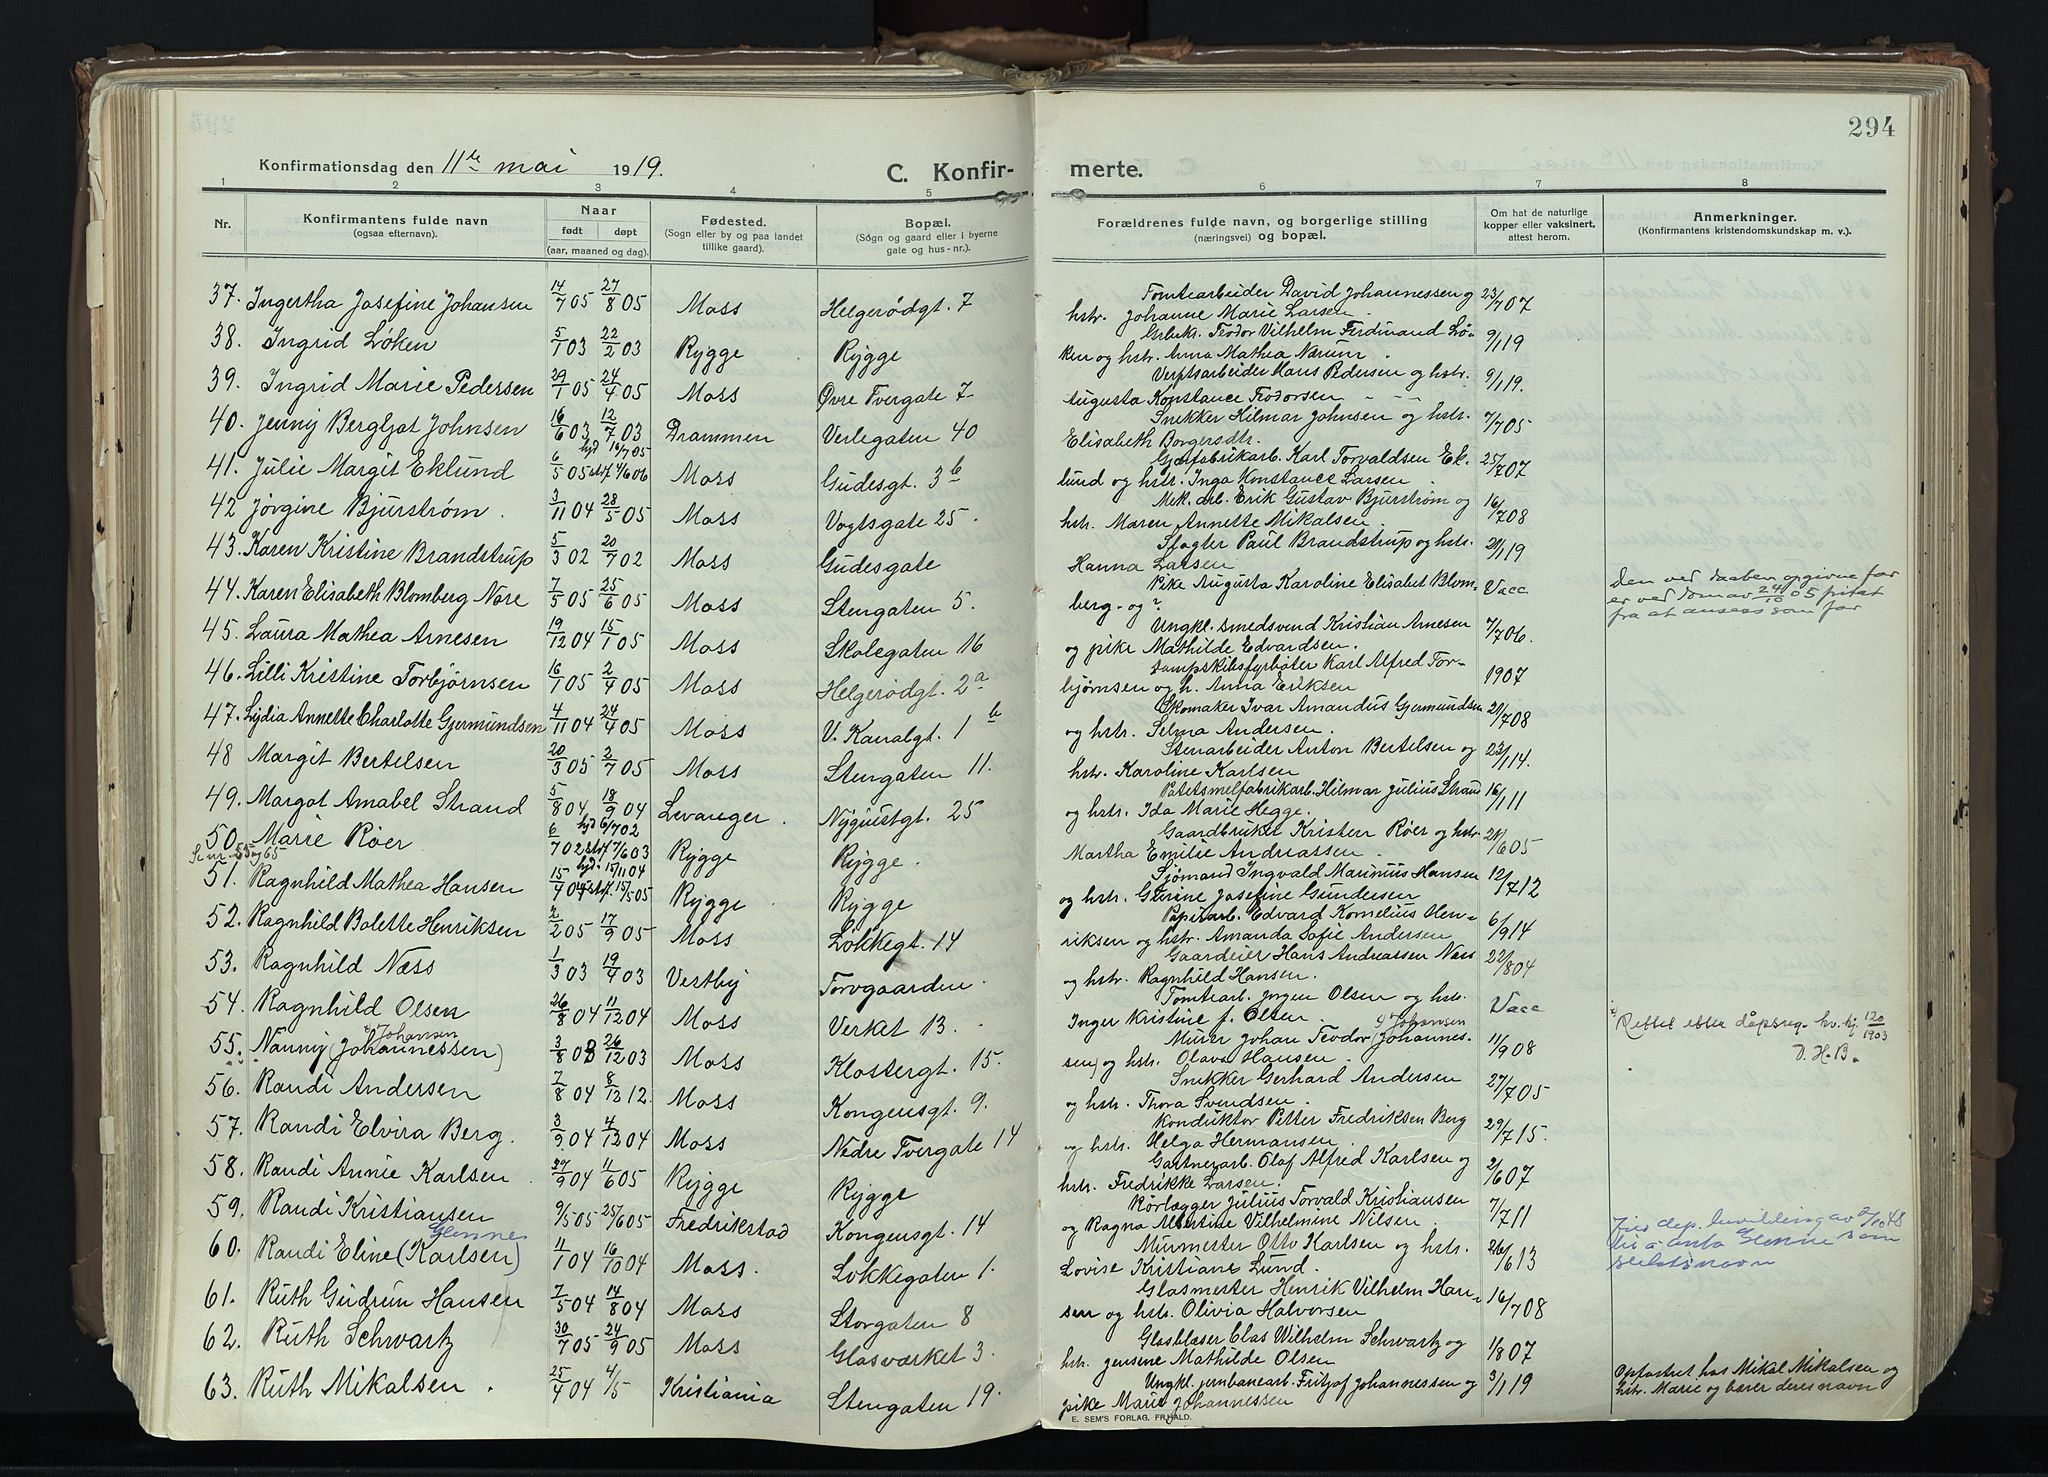 294
Konfirmationsdag den 11te mai 1919.
C. Konfir-
merte.
1 2 3 4 5 6 7 8
Nr.
Konfirmantens fulde navn
(ogsaa efternavn).
Naar
født døpt
(aar, maaned og dag).
Fødested.
(Sogn eller by og paa landet
tillike gaard).
Bopæl.
(Sogn og gaard eller i byerne
gate og hus-nr.).
Forældrenes fulde navn, og borgerlige stilling
(næringsvei) og bopæl.
Om hat de naturlige
kopper eller vaksinert,
attest herom.
Anmerkninger.
(Konfirmantens kristendomskundskap m. v.).
37. Ingertha Josefine Johansen 14/7 05 27/8 05 Moss Helgerødgt. 7 Tomtearbeider David Johannessen og 23/7 07
hstr. Johanne Marie Larsen.
38. Ingrid Løken 5/1 03 22/2 03 Rygge Rygge Grbuk. Teodor Vilhelm Ferdinand Lø- 9/1 19
ken og hstr. Anna Mathea Nærum.
39. Ingrid Marie Pedersen 29/1 05 24/4 05 Moss Øvre Tvergate 7 Verftsarbeider Hans Pedersen og hstr. 9/1 19.
Augusta Konstance Trodorsen
40. Jenny Bergljot Johnsen 16/6 03 12/7 03 Drammen Verlegaten 40 Snekker Hilmar Johnsen og hstr. 7/7 05
Elisabeth Borgersdtr.
41. Julie Margit Eklund 6/5 05 hjd 16/7 05 stf 4/6 06 Moss Gudesgt. 3b Gjærfabrikarb. Karl Torvaldsen Ek- 25/7 07
lund og hstr. Inga Konstance Larsen.
42 Jørgine Bjurstrøm. 3/11 04 28/5 05 Moss Vogtsgate 25. Mek. arb. Erik Gustav Bjurstrøm og 16/7 08
hstr. Maren Annette Mikalsen.
43. Karen Kristine Brandstrup 5/3 02 20/7 02 Moss Gudesgate Slagter Paul Brandstrup og hstr. 21/1 19
Hanna Larsen
44. Karen Elisabeth Blomberg Nore 7/5 05 25/6 05 Moss Stengaten 5. Pike Augusta Karoline Elisabet Blom- Vacc
berg - og ?
Den ved daaben opgivne far
er ved dom av 24/10 05 fritat
fra at ansees som far
45. Laura Mathea Arnesen 19/12 04 15/1 05 Moss Skolegaten 16 Ungkl. smedsvend Kristian Arnesen 7/7 06.
og pike Mathilde Edvardsen.
46. Lilli Kristine Torbjørnsen 16/1 05 2/4 05 Moss Helgerødgt. 2a Dampskibsfyrbøter Karl Alfred Tor- 1907
bjørnsen og h. Anna Eriksen
47. Lydia Annette Charlotte Gjermundsen 4/11 04 24/4 05 Moss V. Kanalgt. 1b Skomaker Ivar Amandus Gjermundsen 21/7 08
og hstr. Selma Andersen.
48 Margit Bertelsen 20/3 05 2/7 05 Moss Stengaten 11. Stenarbeider Anton Bertelsen og 23/1 14.
hstr. Karoline Karlsen
49. Margot Amabel Strand 5/8 04, 18/9 04 Levanger. Nyquistgt. 25 Potetsmelfabrikarb. Hilmar Julius Strand 16/1 11
og hstr. Ida Marie Hegge.
50. Marie Røer 6/7 02 hjd 6/7 02 stf 7/6 03 Rygge Rygge. Gaardbruker Kristen Røer og hstr. 21/6 05
Martha Emilie Andreassen.
Se nr. 55 og 65
51. Ragnhild Mathea Hansen 15/4 04 hjd. 15/11 04 stf. 15/5 05 Rygge Rygge Sjømand Ingvald Marinius Hansen 12/7 12
og hstr. Gunine Josefine Gundersen
52. Ragnhild Bolette Henriksen 2/2 05 17/9 05 Moss Løkkegt. 14 Papirarb. Edvard Kornelius Hen- 6/9 14
riksen og hstr. Amanda Sofie Andersen
53. Ragnhild Næss 1/3 03 19/4 03 Vestby Torvgaarden. Gaardeier Hans Andreassen Næss 22/8 04
og hstr. Ragnhild Hansen.
54. Ragnhild Olsen 26/8 04 11/12 04 Moss Verket 13. Tomtearb. Jørgen Olsen og hstr. Vacc
Inger Kristine f. Olsen.
55. Nanny (Johannessen) Johansen 3/8 03 26/12 03 Moss Klostergt. 15. Murer Johan Teodor (Johannes- Johansen 11/9 08
sen) og hstr. Olava Hansen.
Rettet efter døpsreg. kv. kj. 120/1903
D. H. B.
56. Randi Andersen 7/8 04 8/12 12. Moss Kongensgt. 9. Snekker Gerhard Andersen 27/7 05
og hstr. Thora Svendsen.
57. Randi Elvira Berg. 3/9 04 4/12 04 Moss Nedre Tvergate 14 Konduktør Petter Fredriksen Berg 29/7 15.
og hstr. Helga Hermansen.
58. Randi Annie Karlsen 29/9 04 11/6 05 Rygge Rygge Gartnerarb. Olaf Alfred Karlsen og 2/6 07
hstr. Fredrikke Larsen.
59. Randi Kristiansen 9/5 05 25/6 05 Fredrikstad Kongensgt. 14 Rørlægger Julius Torvald Kristiansen 7/7 11
og Ragna Albertine Vilhelmine Nilsen.
60. Randi Eline (Karlsen) Glenne 11/1 04 16/10 04 Moss. Løkkegaten 1. Murmester Otto Karlsen og hstr. 26/6 13
Lovise Kristiane Lund.
Jus dep. bevilling av 2/10 48
til å anta Glenne som
slektsnavn
61. Ruth Gudrun Hansen 7/5 04 14/8 04 Moss Storgaten 8 Glasmester Henrik Vilhelm Han- 16/7 08
sen og hstr. Olivia Halvorsen
62. Ruth Schwartz 30/7 05 24/9 05 Moss Glasværket 3. Glasblæser Clas Wilhelm Schwartz og 1/8 07
hstr. Jensine Mathilde Olsen
63. Ruth Mikalsen. 25/4 04 4/5 Kristiania Stengaten 19. Ungkl. jernbanearb. Fritjof Johannessen og 3/1 19
pike Marie Johannessen
Opfostret hos Mikal Mikalsen og
hstr. Marie og bærer deres navn
E. SEM'S FORLAG, FR.HALD.